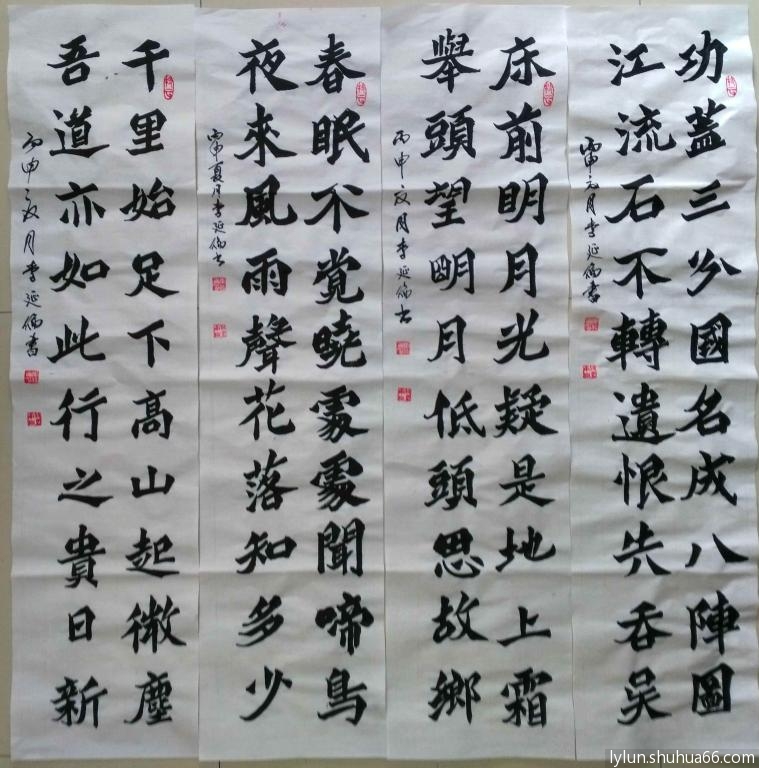 功蓋三分國名成八陣圖
江流石不轉遺恨失吞吳
丙申元月李延倫書
床前明月光疑是地上霜
舉頭望明月低頭思故鄉
丙申夏月李延倫书
春眠不覚曉處處聞啼鳥
夜來風雨聲花落知多少
丙申夏月李延倫书
千里始足下高山起微塵
吾道亦如此行之貴日新
丙申夏月李延倫書
lylun.shuhua66.com